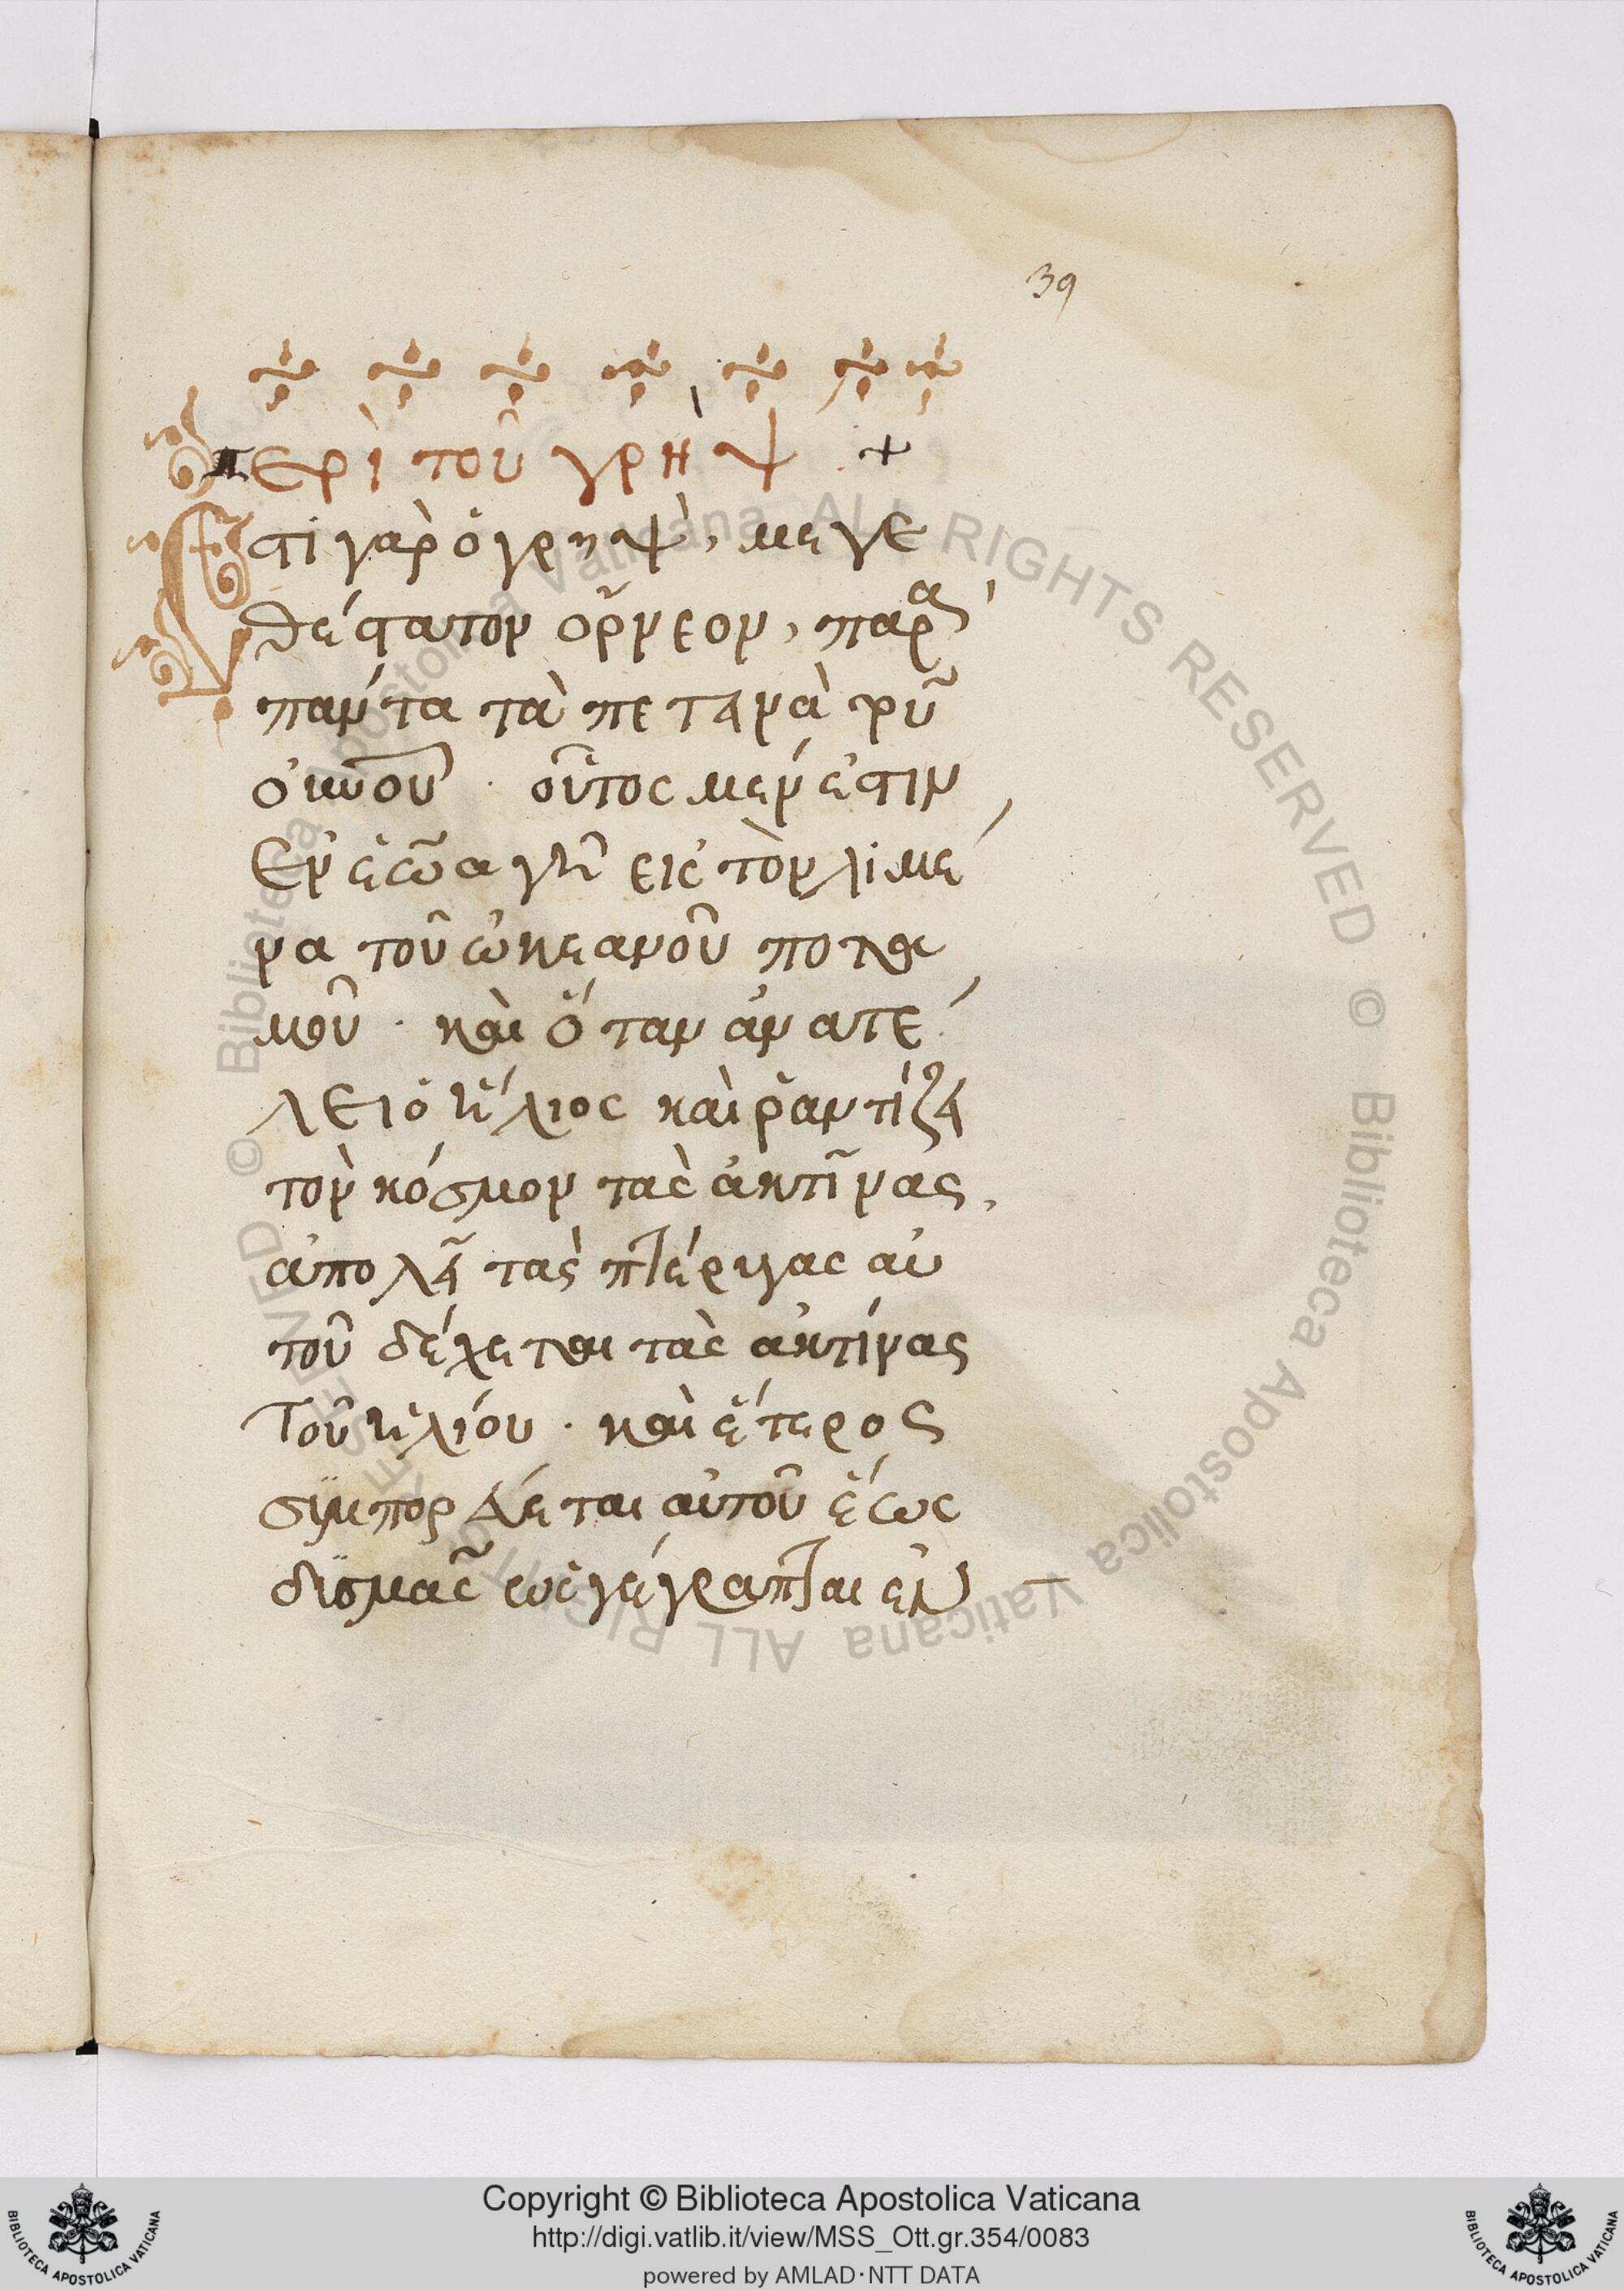 39
περὶ τοῦ γρὴψ +
Ἐστὶ γὰρ ὁ γρηψὶ, μεγε
θέστατον ὄρνεον, παρὰ
πάντα τὰ πετεινὰ τοῦ
οὐνοῦ · οὗτος μέν ἐστιν
ἐν ἑώα γῆ εἰς τὸν λιμέ
να τοῦ ὠκεανοῦ ποτα
μοῦ · καὶ ὅταν ἀνατέ
λει ὁ ἥλιος καὶ ῥαντίζει
τὸν κόσμον τὰς ἀκτῖνας,
ἁπολεῖ τὰς πτέρυγας αὐ
τοῦ δέχεται τὰς ἀκτίνας
τοῦ ἡλίου · καὶ ἕτερος
συμπορεύεται αὐτοῦ ἕως
δϊσμὰς ὡς γέγραπται ἐν
© Biblioteca Apostolica Vaticana ALL RIGHTS RESERVED © Biblioteca Apostolica Vaticana ALL RIGHTS RESERVED
Copyright © Biblioteca Apostolica Vaticana
http://digi.vatlib.it/view/MSS_Ott.gr.354/0083
powered by AMLAD·NTT DATA
BIBLIOTECA APOSTOLICA VATICANA
BIBLIOTECA APOSTOLICA VATICANA